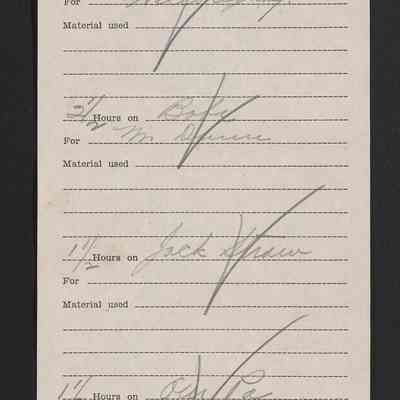 For
Material used
2 1/2 Hours on Body
For Mr Dunn
Material used
1 1/2 Hours on Jack Straw
For
Material used
1 1/2 Hours on